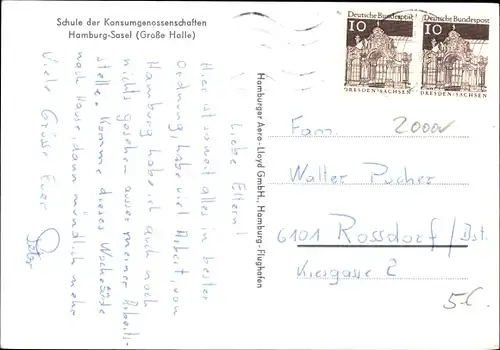 Schule der Konsumgenossenschaften
Hamburg-Sasel (Große Halle)
Liebe Eltern!
Hier ist soweit alles in bester
Ordnung, habe viel Arbeit, von
Hamburg habe ich auch noch
nichts gesehen - ausser meiner Arbeits-
stelle. Komme dieses Wochenende
nach Hause, dann mündlich mehr
Viele Grüsse Euer
Peter
Hamburger Aero-Lloyd GmbH., Hamburg-Flughafen
Deutsche Bundespost
10
DRESDEN-SACHSEN
Deutsche Bundespost
10
DRESDEN-SACHSEN
Fam.
Walter Pucher
6101 Rossdorf/Dst.
Kiesgasse 2